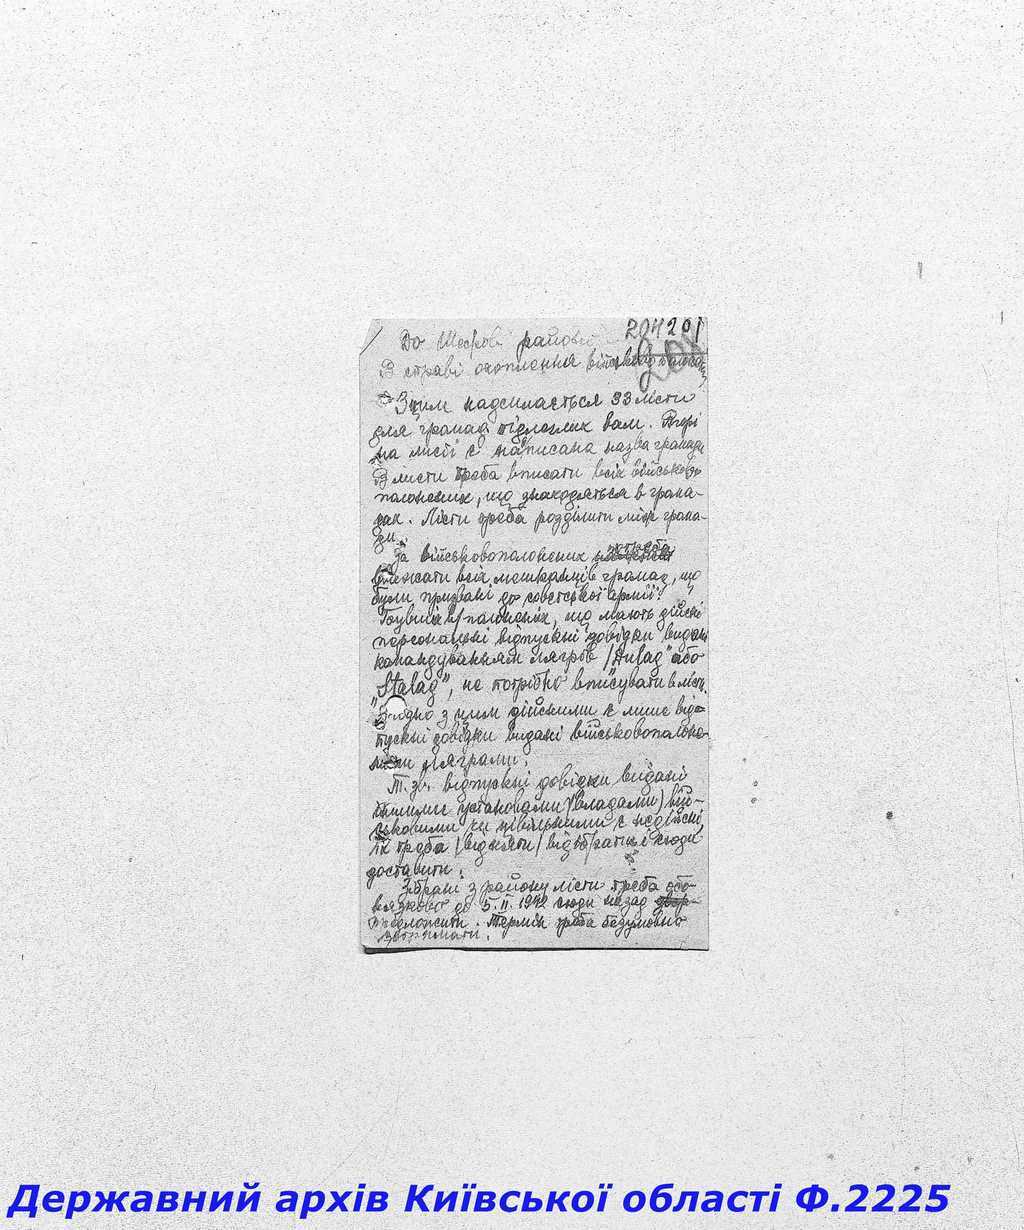 204 201
До Шефрові районів
208
В справі охоплення військовополонен.
З цим надсилається 33 лісти
для громад підлеглих вам. Вгорі
на листі є написана назва громади
В лісти треба вписати всіх військово
полонених, що знаходяться в грома-
дах. Лісти треба розділити між грома-
ди.
За військовополонених
вважати всіх мешканців громад, що
були призвані до совєтської армії!
в/полонених, що мають дійсні
персональні відпускні довідки видані
командуванням лягрів /"Dulag" або
"Stalag", не потрібно вписувати в лісти.
Згідно з цим дійсними є лише від-
пускні довідки видані військовополоне-
ними ляграми.
Т. зв. відпускні довідки видані
іншими установами /владами/ вій-
ськовими чи цівільними є недійсні
їх треба /відняти/ відібрати і сюди
доставити.
Зібрані з району лісти треба обо-
вязково до 5.II.1942 сюди назад
предложити. Термін треба безумовно
затримати.
Державний архів Київської області Ф.2225